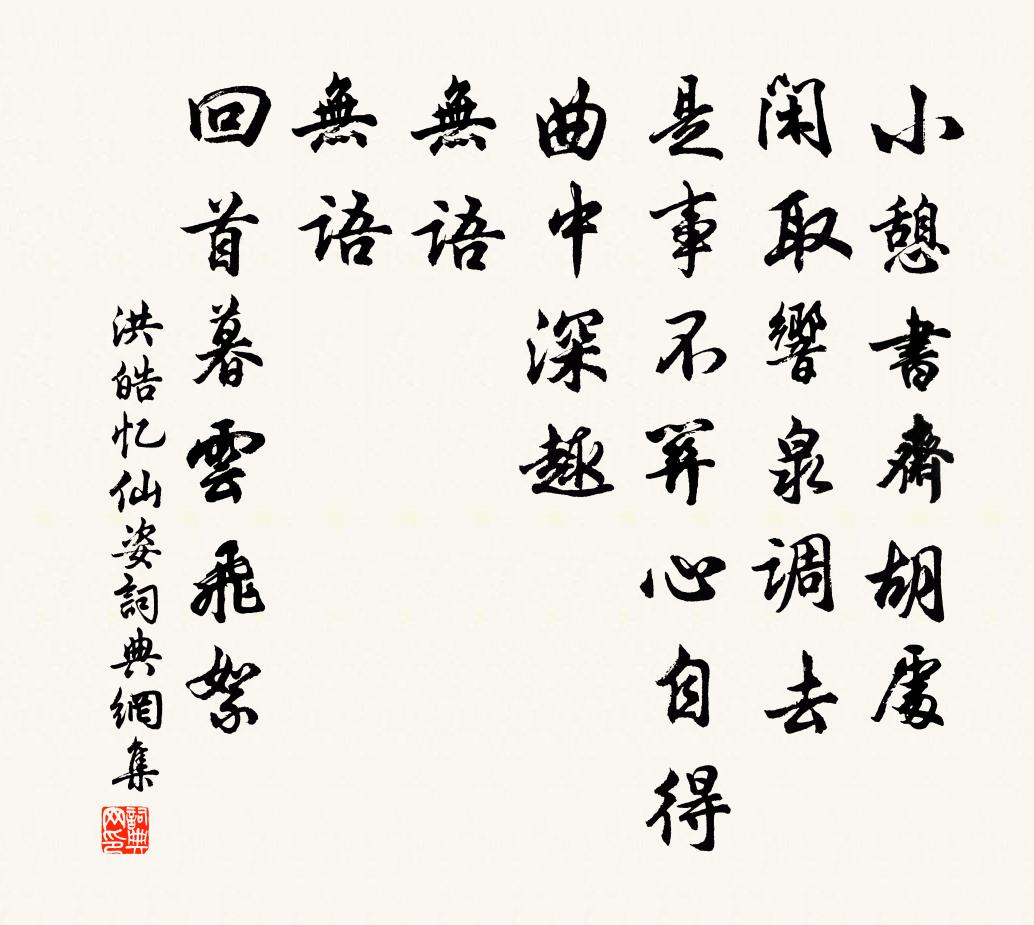 小憩書齋胡處
閑取響泉調去
是事不關心自得
曲中深趣
無語
無語
回首暮雲飛絮
洪皓忆仙姿詞典網集
詞典
网印